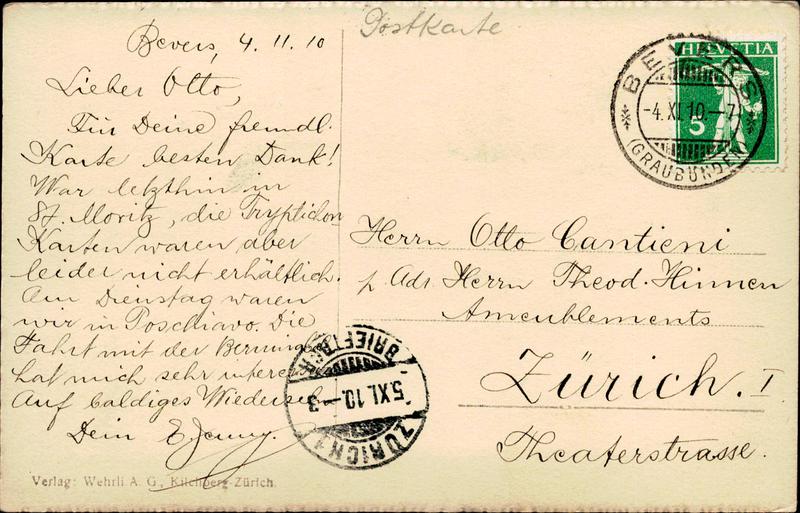 Postkarte
Bevers, 4. 11. 10
Lieber Otto,
Für Deine freundl.
Karte besten Dank!
War letzthin in
St. Moritz, die Tryptichon
Karten waren aber
leider nicht erhältlich.
Am Dienstag waren
wir in Poschiavo. Die
Fahrt mit der Bernina
hat mich sehr interess
Auf baldiges Wiedersehn
Dein E. Jenny.
Verlag: Wehrli A. G., Kilchberg-Zürich.
HELVETIA
5
BEVERS
-4.XI.10.-7
(GRAUBÜNDEN)
Herrn Otto Cantieni
p. Adr. Herrn Theod. Hinnen
Ameublements
Zürich. I
Theaterstrasse.
ZÜRICH 1
5.XI.10.-3
BRIEFTRÄGER